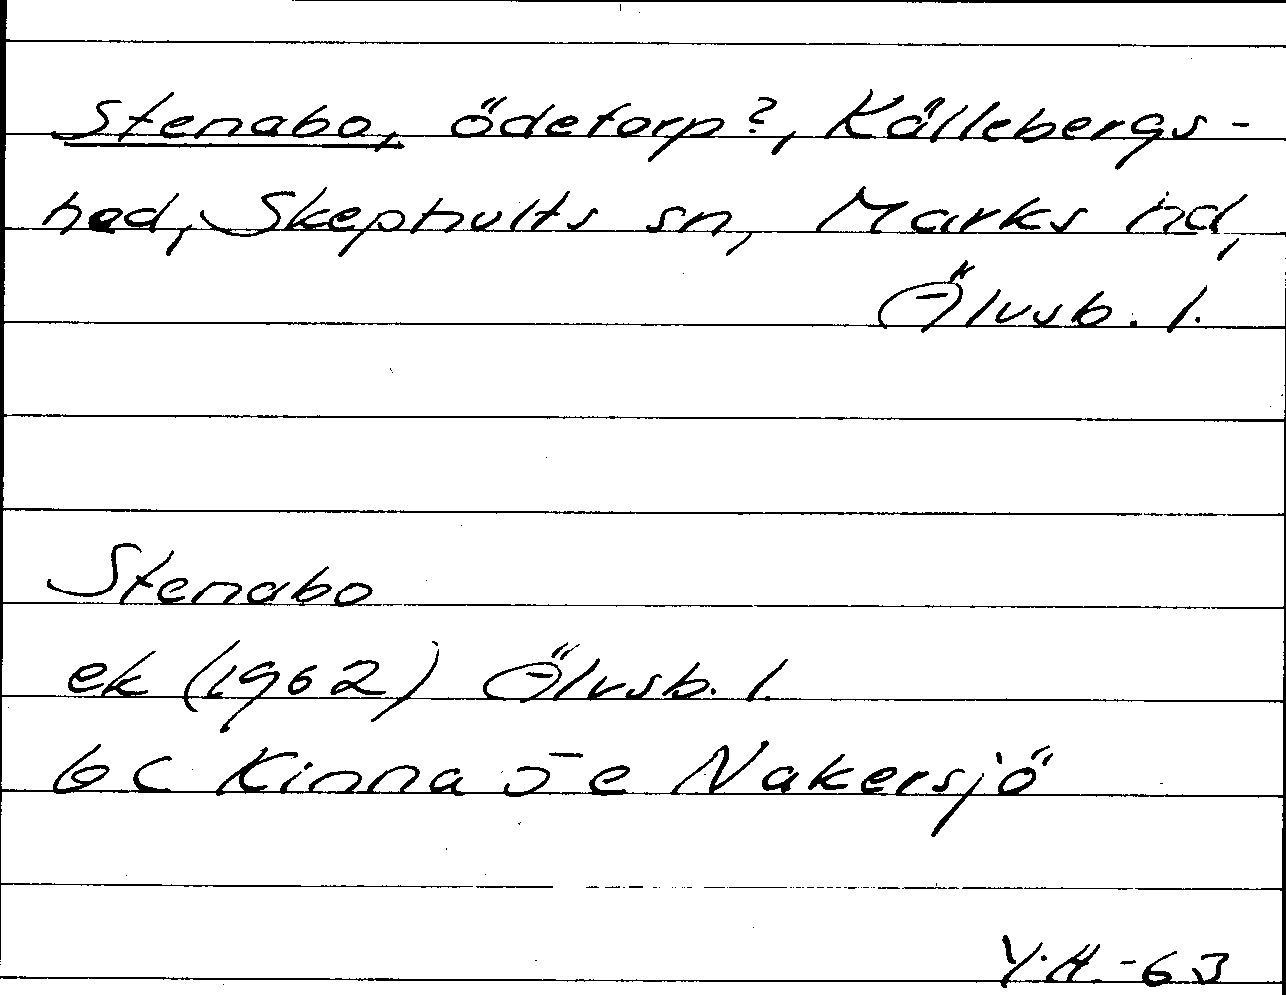 Stenabo, ödetorp?, Källebergs-
hed, Skephults sn, Marks hd,
Älvsb. l.
Stenabo
ek (1962) Älvsb. l.
6 C Kinna 5 e Nakersjö
Y.H.-63